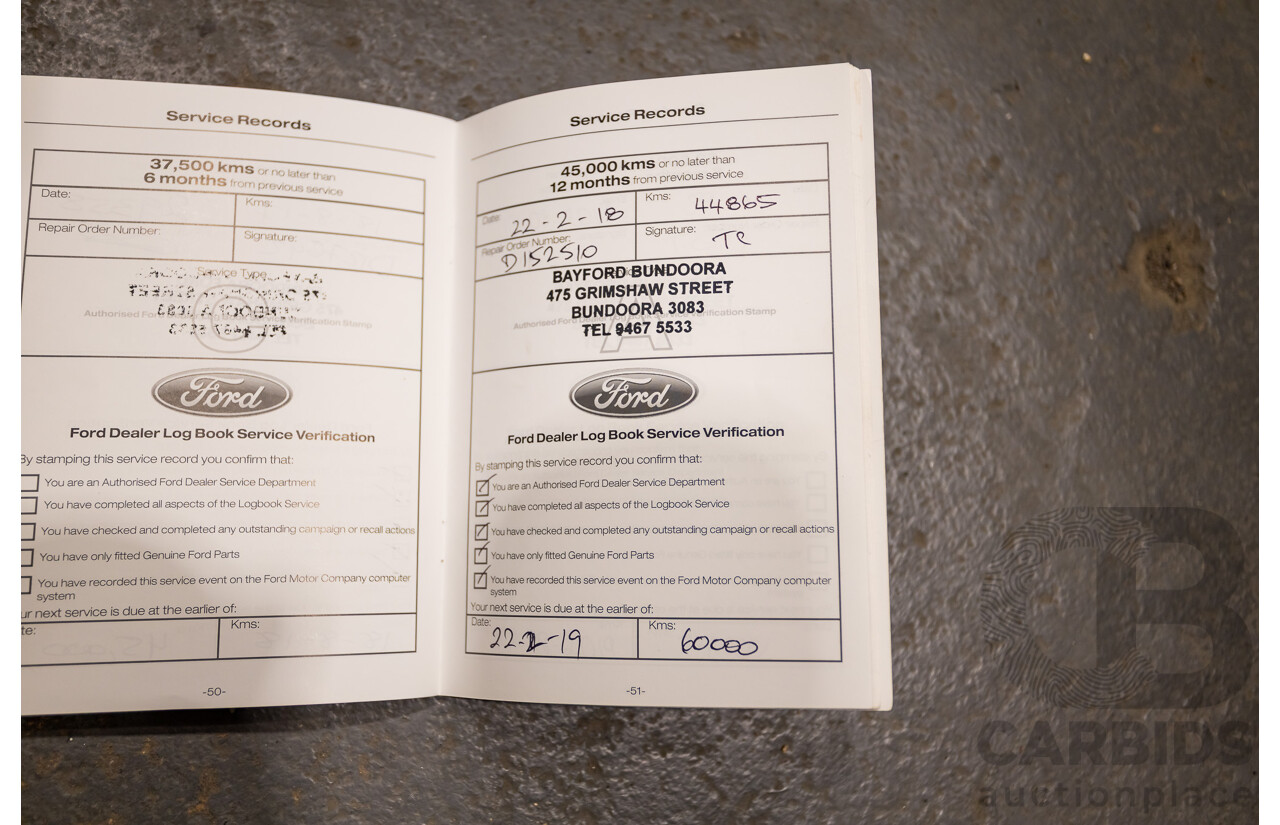 Service Records
37,500 kms or no later than
6 months from previous service
Date:
Kms:
Repair Order Number:
Signature:
Service Type
Authorised Ford
Verification Stamp
Ford
Ford Dealer Log Book Service Verification
By stamping this service record you confirm that:
You are an Authorised Ford Dealer Service Department
You have completed all aspects of the Logbook Service
You have checked and completed any outstanding campaign or recall actions
You have only fitted Genuine Ford Parts
You have recorded this service event on the Ford Motor Company computer
system
ur next service is due at the earlier of:
te:
Kms:
-50-
Service Records
45,000 kms or no later than
12 months from previous service
Date: 22-2-18
Kms: 44865
Repair Order Number: D152510
Signature: TR
BAYFORD BUNDOORA
475 GRIMSHAW STREET
BUNDOORA 3083
Authorised Ford
Verification Stamp
TEL 9467 5533
A
Ford
Ford Dealer Log Book Service Verification
By stamping this service record you confirm that:
You are an Authorised Ford Dealer Service Department
You have completed all aspects of the Logbook Service
You have checked and completed any outstanding campaign or recall actions
You have only fitted Genuine Ford Parts
You have recorded this service event on the Ford Motor Company computer
system
Your next service is due at the earlier of:
Date: 22-2-19
Kms: 60000
-51-
CB
CARBIDS
auctionplace